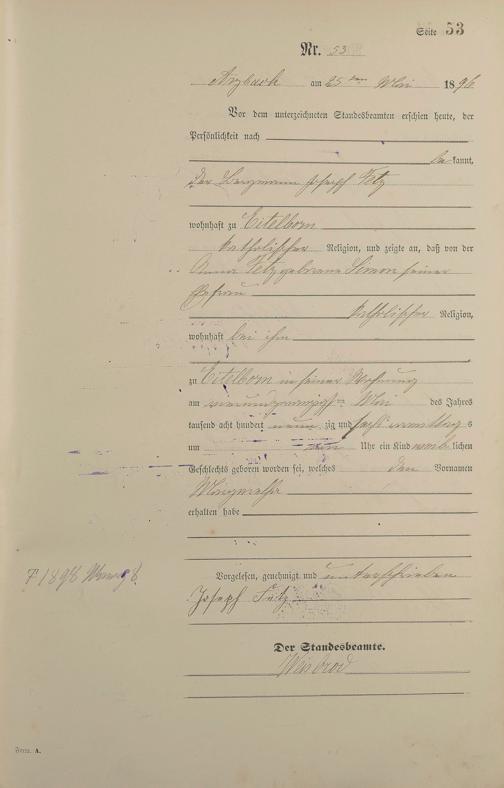 Seite 53
Nr. 53
Arzbach am 25 ten Mai 1896
Vor dem unterzeichneten Standesbeamten erschien heute, der
Persönlichkeit nach
bekannt,
der Bergmann Joseph Fetz
wohnhaft zu Eitelborn
katholischer Religion, und zeigte an, daß von der
Anna Fetz geborene Simon seiner
Ehefrau
katholischer Religion,
wohnhaft bei ihm
zu Eitelborn in seiner Wohnung
am vierundzwanzigsten Mai des Jahres
tausend acht hundert neunzig und sechs Vormittags
um Uhr ein Kind weiblichen
Geschlechts geboren worden sei, welches den Vornamen
Margaretha
erhalten habe
Vorgelesen, genehmigt und unterschrieben
Joseph Fetz
Der Standesbeamte.
Weisbrod
† 1898
Form. A.